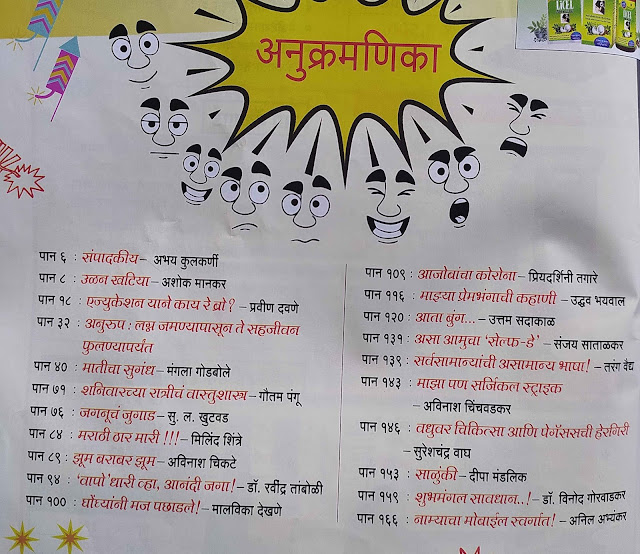 अनुक्रमणिका
पान ६ : संपादकीय – अभय कुलकर्णी
पान ८ : उळन खटिया – अशोक मानकर
पान १८ : एज्युकेशन याने काय रे ब्रो? – प्रवीण दवणे
पान ३२ : अनुरुप : लग्न जमण्यापासून ते सहजीवन
फुलण्यापर्यंत
पान ४० : मातीचा सुगंध – मंगला गोडबोले
पान ७१ : शनिवारच्या रात्रीचं वास्तुशास्त्र – गौतम पंगू
पान ७६ : जगनूचं जुगाड – सु. ल. खुटवड
पान ८४ : मराठी ठार मारी !!! – मिलिंद शिंत्रे
पान ८९ : झूम बराबर झूम – अविनाश चिकटे
पान ९४ : ‘वापो’ धारी व्हा, आनंदी जगा! – डॉ. रवींद्र तांबोळी
पान १०० : घोंघ्यांनी मज पछाडले! – मालविका देखणे
पान १०९ : आजोबांचा कोरोना – प्रियदर्शिनी तगारे
पान ११६ : माझ्या प्रेमभंगाची कहाणी – उद्धव भयवाल
पान १२० : आता बुंग... – उत्तम सदाकाळ
पान १३१ : असा आमुचा ‘सेल्फ-डे’ – संजय साताळकर
पान १३९ : सर्वसामान्यांची असामान्य भाषा! – तरंग वैद्य
पान १४३ : माझा पण सर्जिकल स्ट्राइक
– अविनाश चिंचवडकर
पान १४६ : वधुवर चिकित्सा आणि पेगॅससची हेरगिरी
– सुरेशचंद्र वाघ
पान १५३ : साळुंकी – दीपा मंडलिक
पान १५९ : शुभमंगल सावधान..! – डॉ. विनोद गोरवाडकर
पान १६६ : नाम्याचा मोबाईल स्वर्गात! – अनिल अभ्यंकर
LICEL